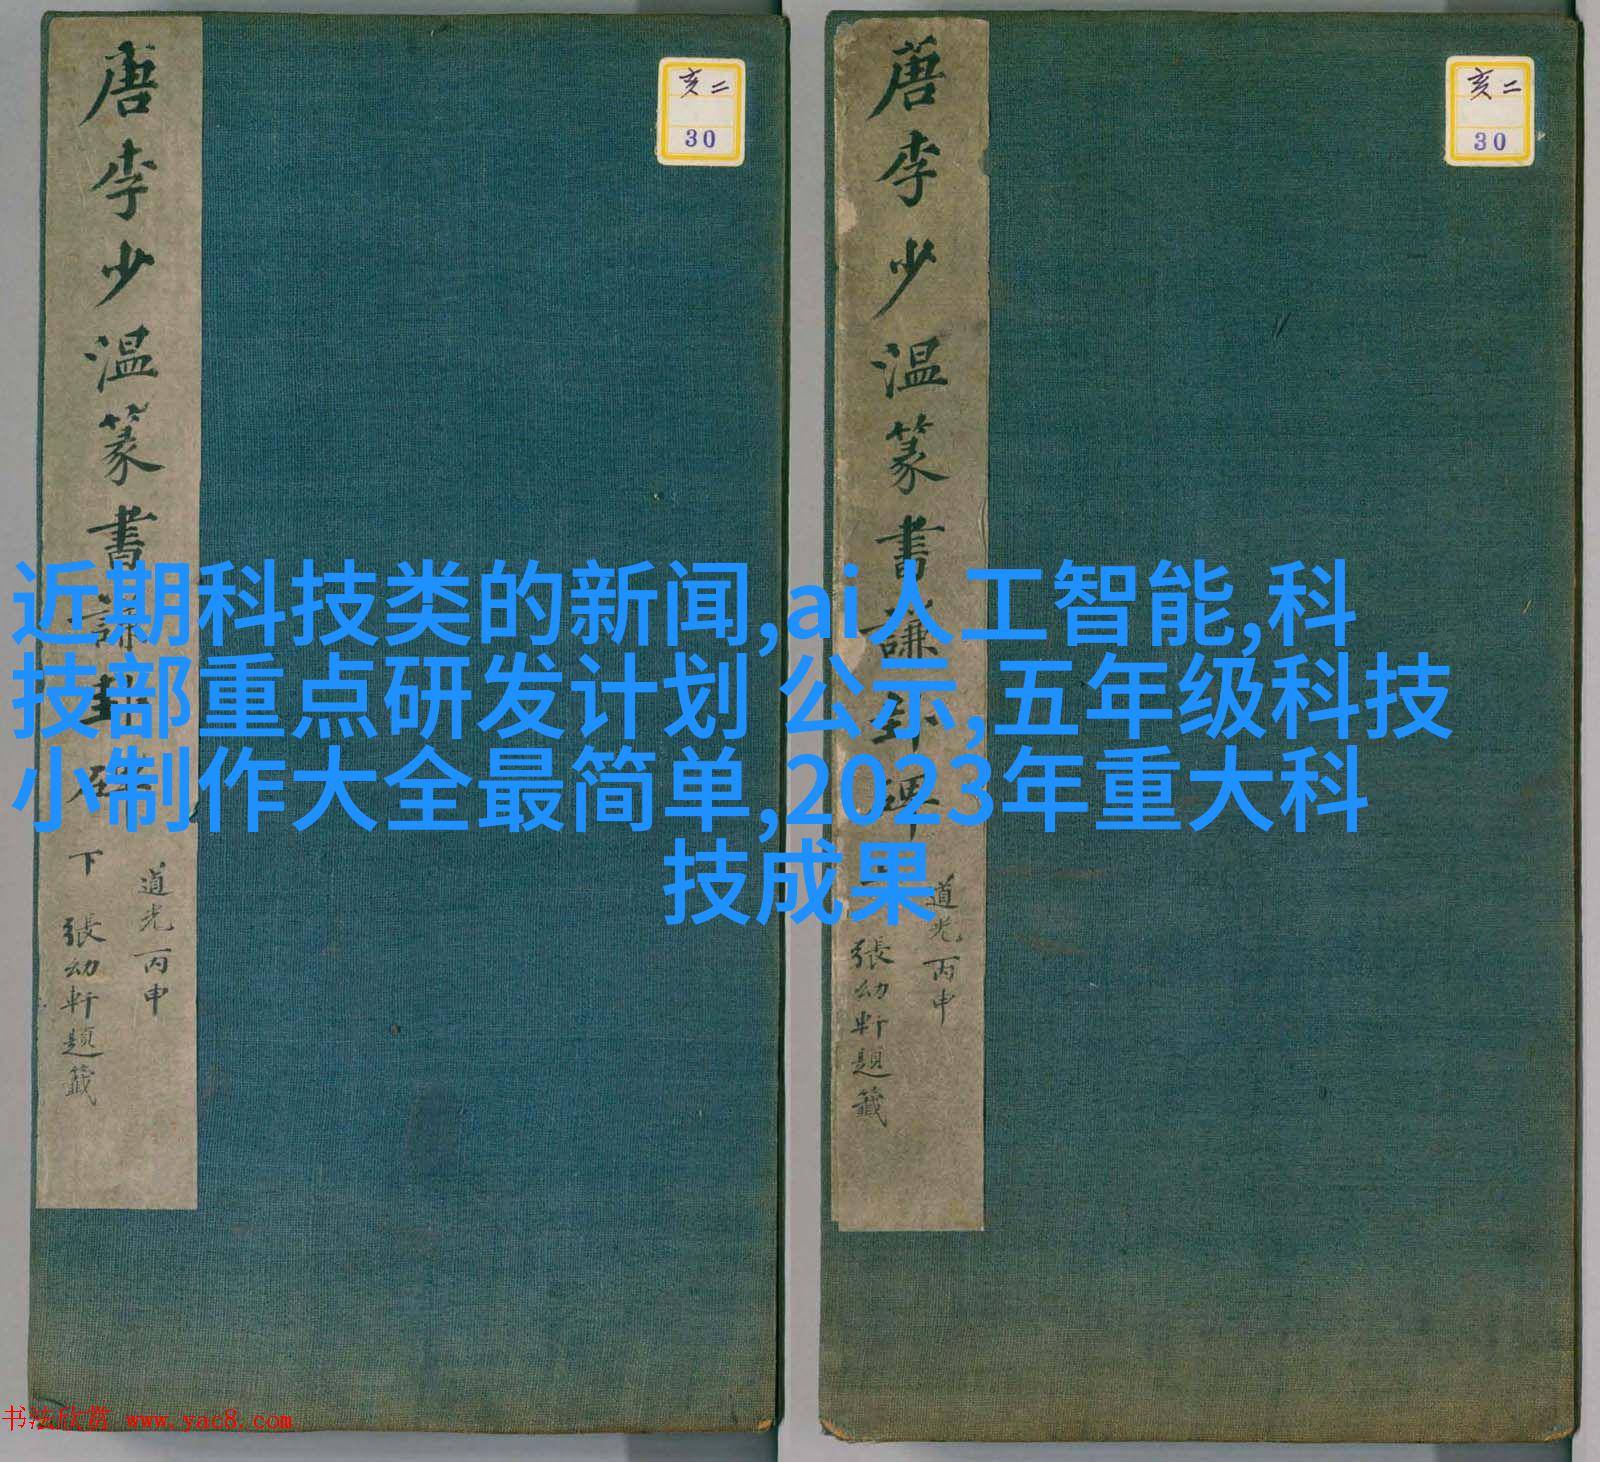 唐李少温篆書謙卦碑
下
道光丙申
張幼軒題籤
亥二
30
唐李少温篆書謙卦碑
道光丙申
張幼軒題籤
亥二
30
近期科技类的新闻,ai人工智能,科
技部重点研发计划 公示,五年级科技
小制作大全最简单,2023年重大科
技成果
书法欣赏 www.yac8.com